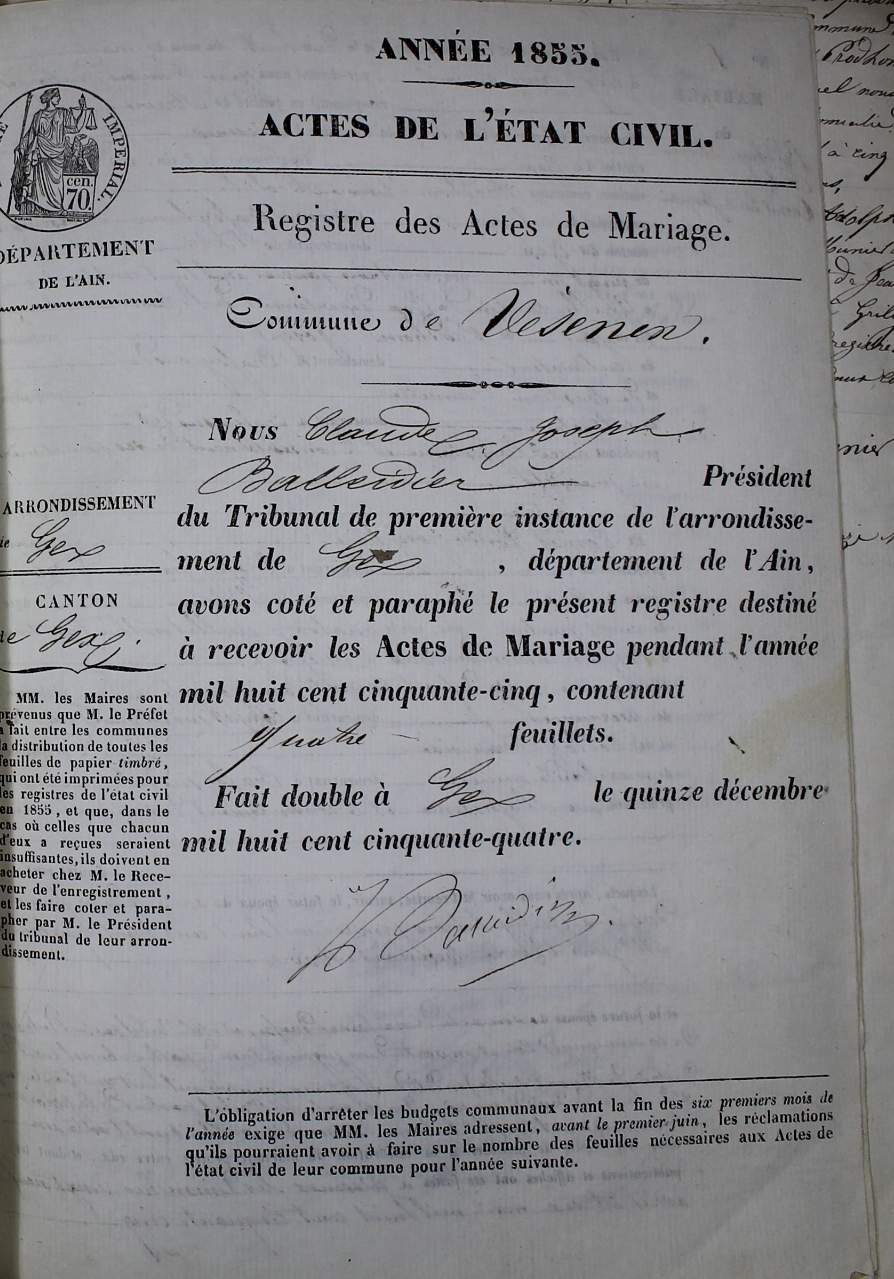 ANNÉE 1855.
ACTES DE L'ÉTAT CIVIL.
Registre des Actes de Mariage.
IMPÉRIAL.
cen.
70.
DÉPARTEMENT
DE L'AIN.
Commune de Vésenex.
Nous Claude Joseph
Balleidier Président
du Tribunal de première instance de l'arrondisse-
ment de Gex, département de l'Ain,
avons coté et paraphé le présent registre destiné
à recevoir les Actes de Mariage pendant l'année
mil huit cent cinquante-cinq, contenant
quatre feuillets.
Fait double à Gex le quinze décembre
mil huit cent cinquante-quatre.
ARRONDISSEMENT
de Gex
CANTON
de Gex.
MM. les Maires sont
prévenus que M. le Préfet
a fait entre les communes
la distribution de toutes les
feuilles de papier timbré,
qui ont été imprimées pour
les registres de l'état civil
en 1855, et que, dans le
cas où celles que chacun
d'eux a reçues seraient
insuffisantes, ils doivent en
acheter chez M. le Rece-
veur de l'enregistrement,
et les faire coter et para-
pher par M. le Président
du tribunal de leur arron-
dissement.
L'obligation d'arrêter les budgets communaux avant la fin des six premiers mois de
l'année exige que MM. les Maires adressent, avant le premier juin, les réclamations
qu'ils pourraient avoir à faire sur le nombre des feuilles nécessaires aux Actes de
l'état civil de leur commune pour l'année suivante.